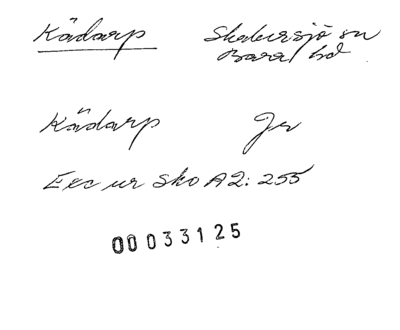 Kädarp Skabersjö sn
Bara hd
Kädarp Jr
Exc ur Sko A2: 255
00033125